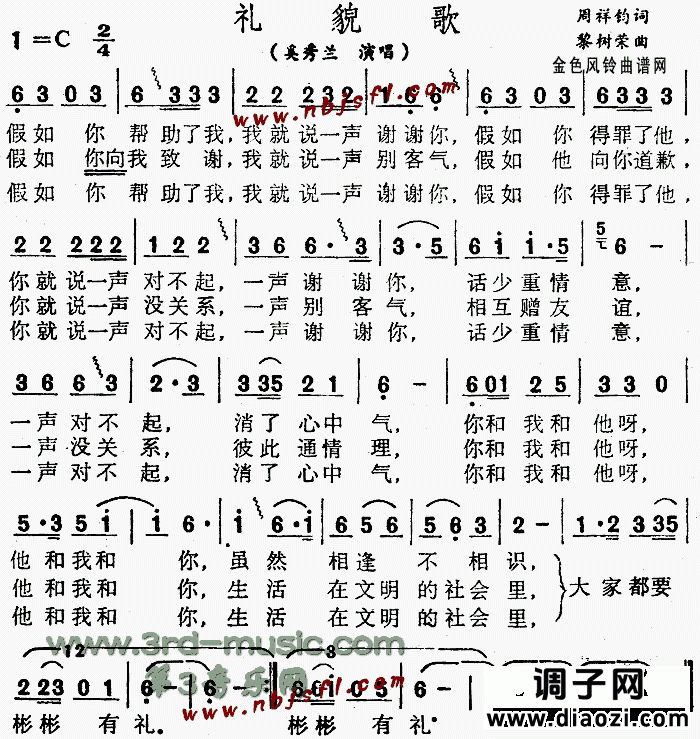 礼貌歌
1=C 2/4
(奚秀兰 演唱)
周祥钧词
黎树荣曲
金色风铃曲谱网
www.nbjsfl.com
6 3 0 3 | 6 3 3 3 | 2 2 2 3 2 | 1 6 6 | 6 3 0 3 | 6 3 3 3 |
假如 你 帮助了我,我就说一声 谢谢你,假如 你 得罪了他,
假如 你向我致 谢,我就说一声 别客气,假如 他 向你道歉,
假如 你 帮助了我,我就说一声 谢谢你,假如 你 得罪了他,
2 2 2 2 2 | 1 2 2 | 3 6 6·3 | 3·5 | 6 i i·5 | 6 - |
你就说一声 对不起,一声谢 谢你,话少重情 意,
你就说一声 没关系,一声别 客气,相互赠友 谊,
你就说一声 对不起,一声谢 谢你,话少重情 意,
3 6 6 3 | 2·3 | 3 3 5 2 1 | 6 - | 6 0 1 2 5 | 3 3 0 |
一声对不 起,消了心中 气,你和我和 他呀,
一声没关 系,彼此通情 理,你和我和 他呀,
一声对不 起,消了心中 气,你和我和 他呀,
5·3 5 i | i 6· | i· 6·i | 6 5 6 | 5 6 3 | 2 - | 1·2 3 3 5 |
他 和我和 你,虽然 相逢 不 相识,
他 和我和 你,生活 在文明 的社会里,
他 和我和 你,生活 在文明 的社会里,
大家都要
www.3rd-music.com
第3音乐网
1 2
3
2 2 3 0 1 | 6 - | 6 - :| 6 0 i 0 5 | 6 - |
彬彬 有 礼。 彬彬 有 礼。
www.nbjsfl.com
调子网
www.diaozi.com